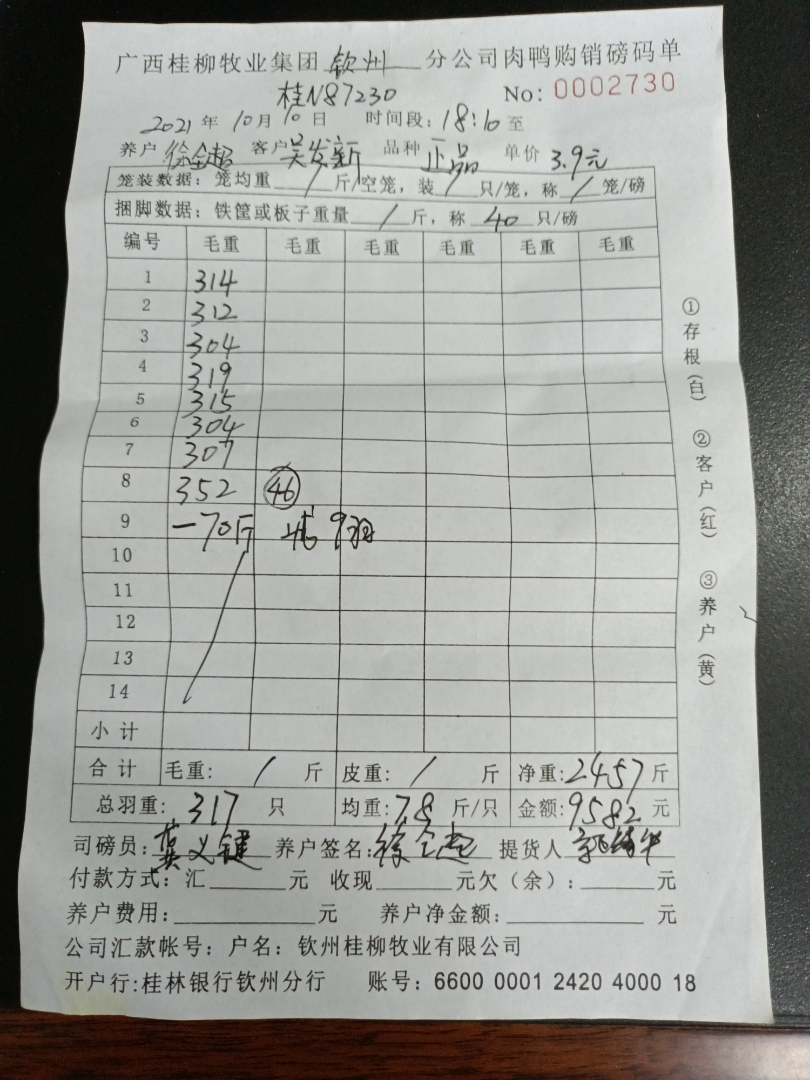 广西桂柳牧业集团 钦州 分公司肉鸭购销磅码单
桂N87230 No: 0002730
2021 年 10 月 10 日 时间段: 18:10 至
养户 徐全超 客户 吴发新 品种 正品 单价 3.9元
笼装数据: 笼均重 / 斤/空笼, 装 / 只/笼, 称 / 笼/磅
捆脚数据: 铁筐或板子重量 / 斤, 称 40 只/磅
编号 毛重 毛重 毛重 毛重 毛重 毛重
1 314
2 312
3 304
4 319
5 315
6 304
7 307
8 352 46
9 -70斤 9羽
10
11
12
13
14
小计
合计 毛重: / 斤 皮重: / 斤 净重: 2457 斤
总羽重: 317 只 均重: 7.8 斤/只 金额: 9582 元
司磅员: 义键 养户签名: 徐全超 提货人
付款方式: 汇 元 收现 元欠(余): 元
养户费用: 元 养户净金额: 元
公司汇款帐号: 户名: 钦州桂柳牧业有限公司
开户行:桂林银行钦州分行 账号: 6600 0001 2420 4000 18
①存根(白) ②客户(红) ③养户(黄)